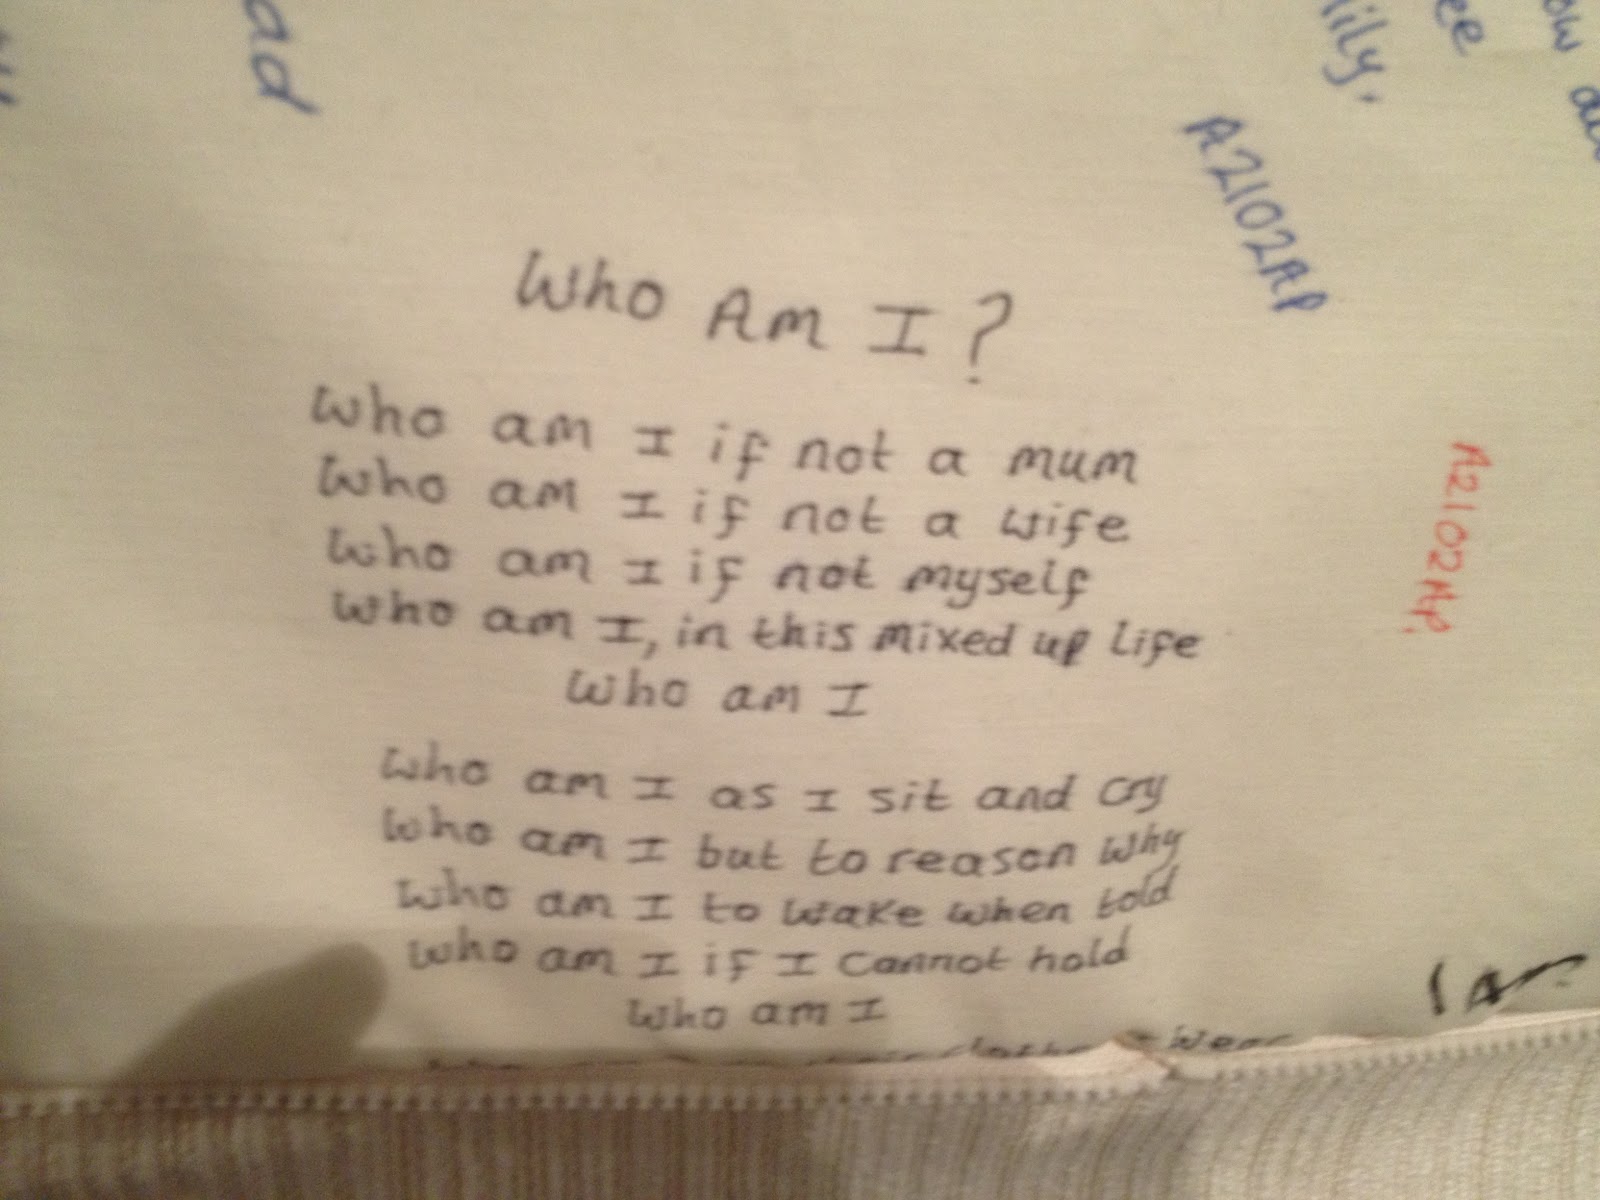 ad
ee
A2102AP
Who Am I?
Who am I if not a mum
Who am I if not a wife
Who am I if not myself
Who am I, in this mixed up life
Who am I
Who am I as I sit and cry
Who am I but to reason why
Who am I to wake when told
Who am I if I cannot hold
Who am I
wear
A2102AP.